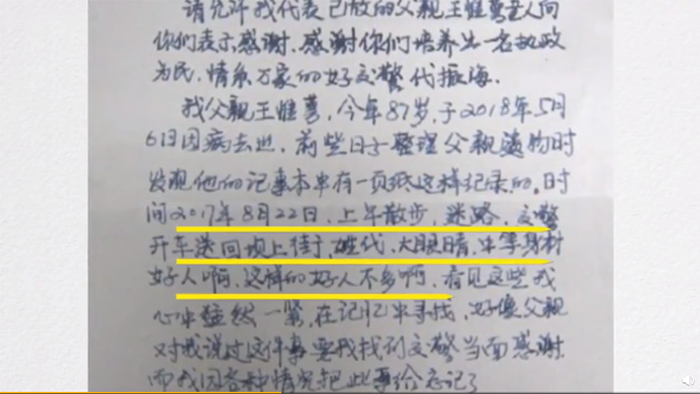 请允许我代表已故的父亲王惟善向
你们表示感谢、感谢你们培养出一名执政
为民,情系万家的好交警代振海。
我父亲王惟善,今年87岁,于2018年5月
6日因病去世,前些日子整理父亲遗物时
发现他的记事本中有一页纸这样纪录的。时
间2017年8月22日,上午散步,迷路,交警
开车送回坝上街,姓代,大眼睛,中等身材
好人啊,这样的好人不多啊,看见这些我
心中猛然一紧,在记忆中寻找,好像父亲
对我说过这件事要我找到交警当面感谢.
而我因各种情况把此事给忘记了